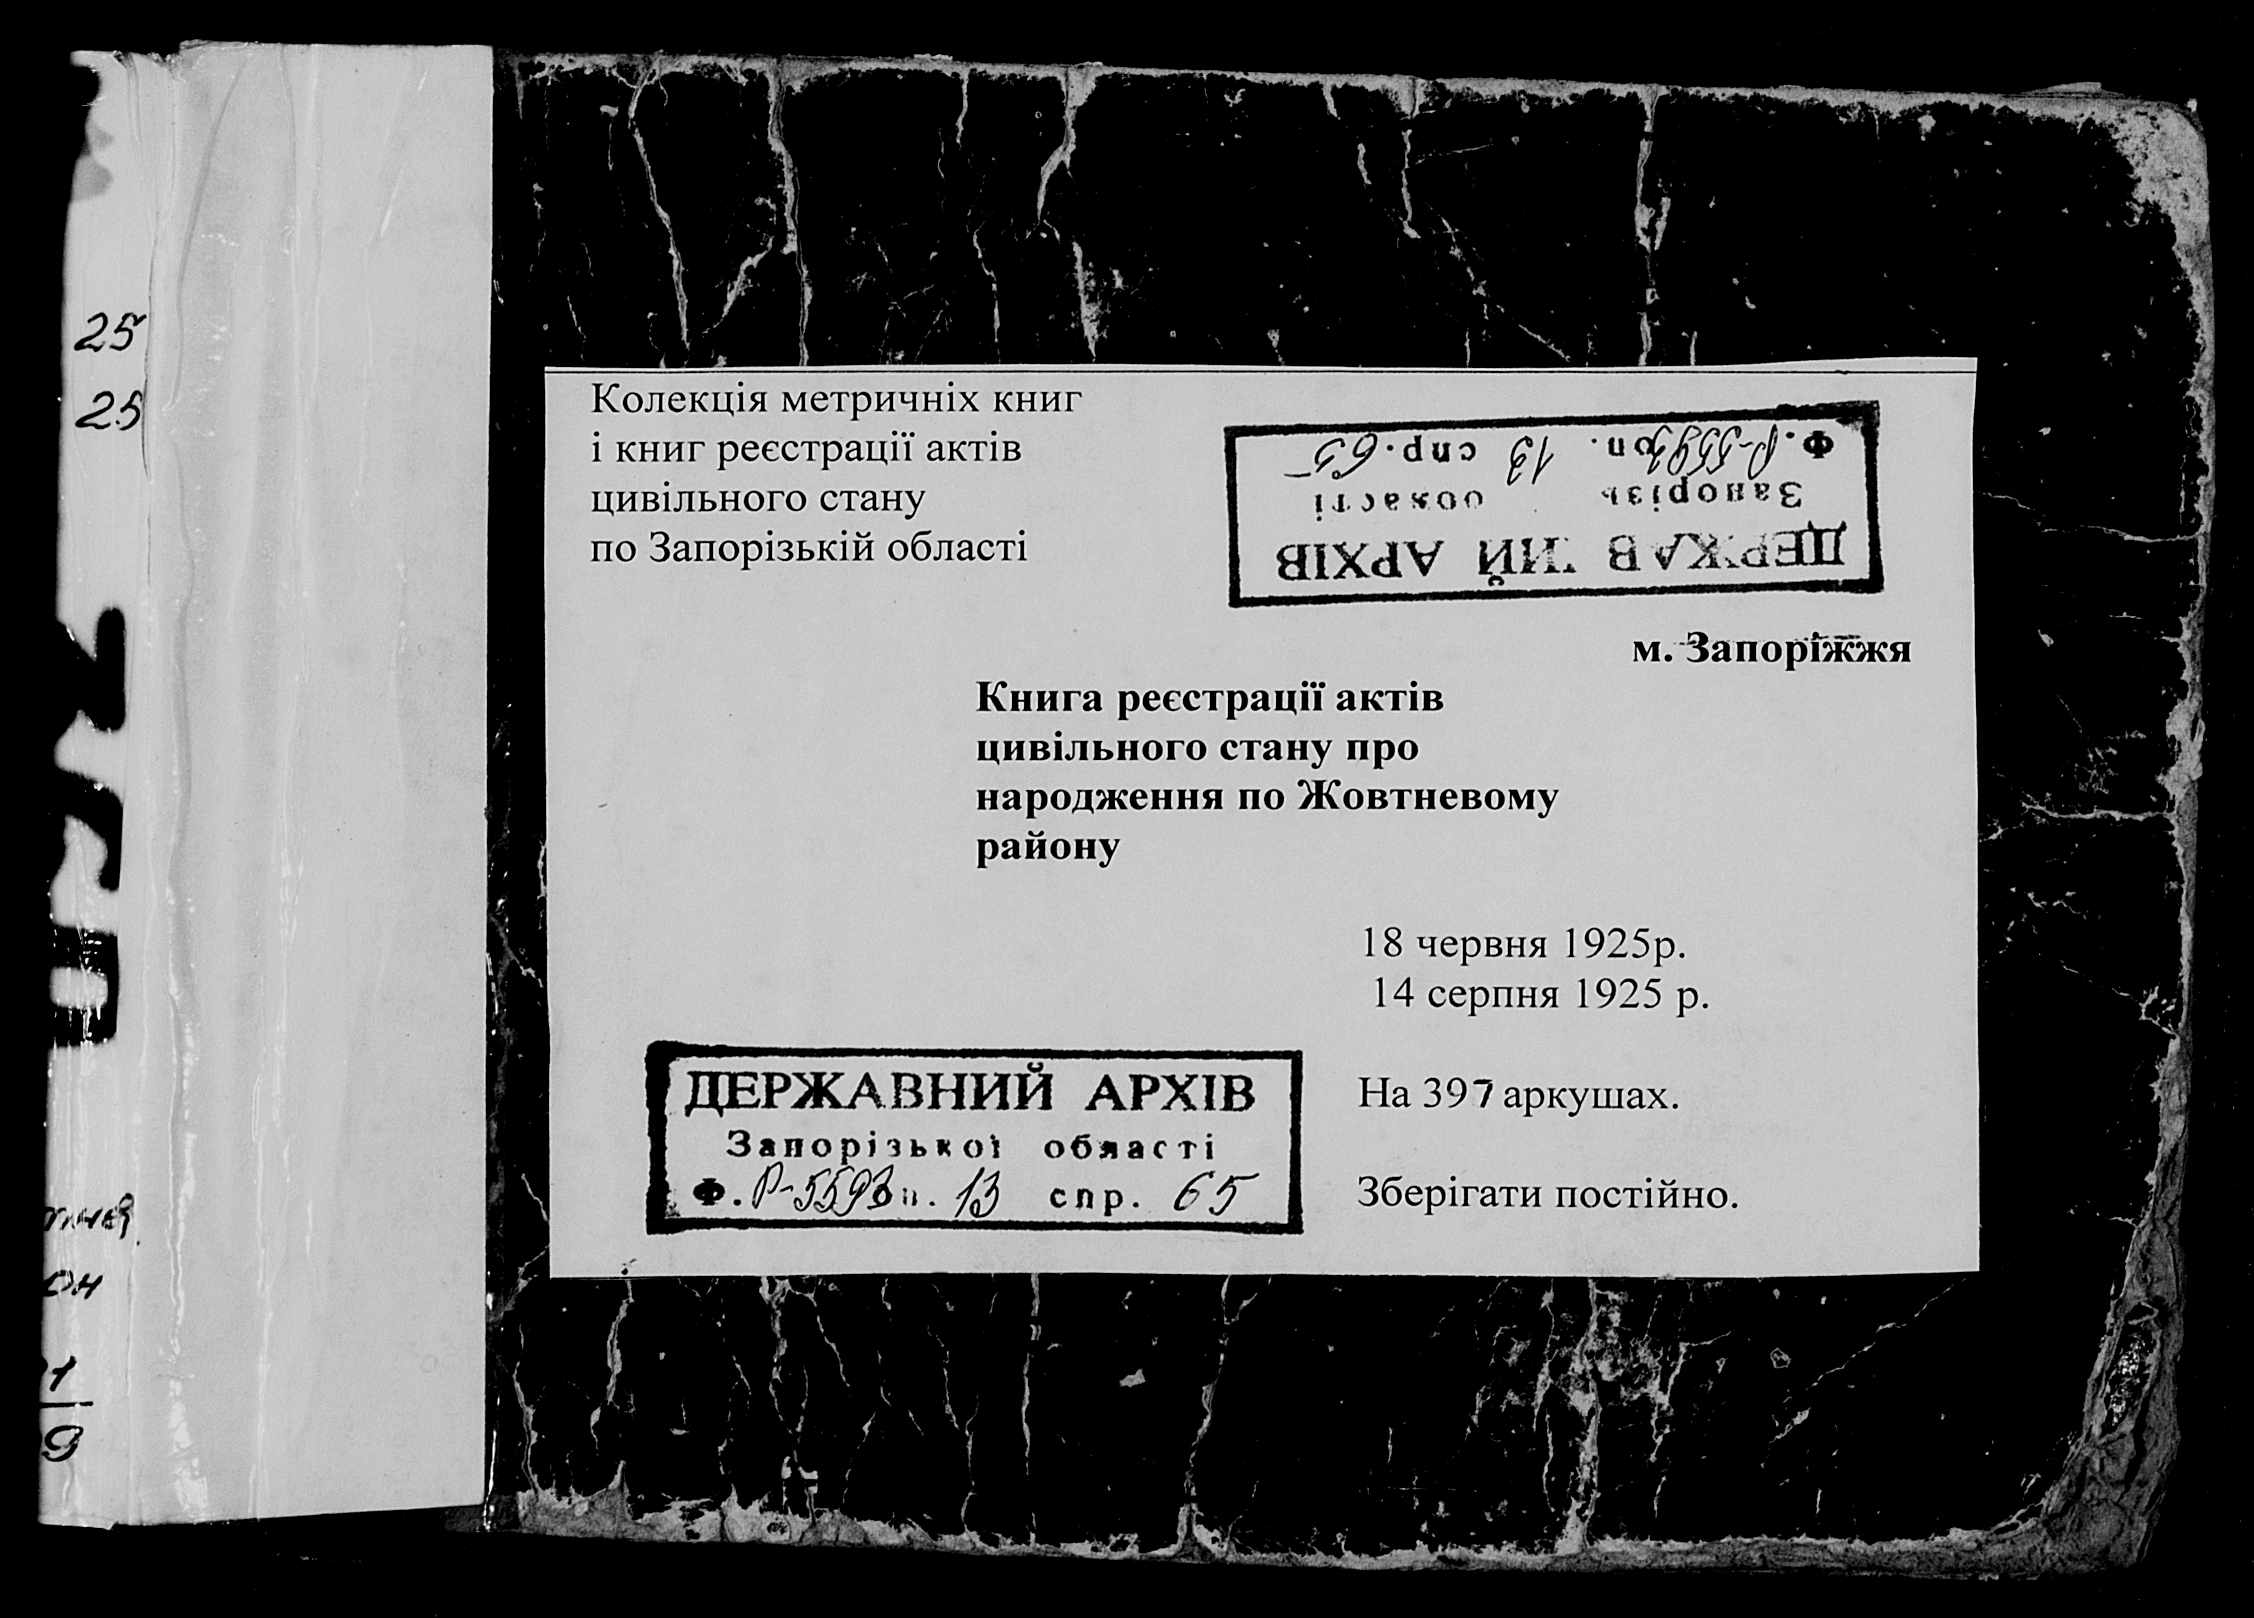 25
25
Колекція метричніх книг
і книг реєстрації актів
цивільного стану
по Запорізькій області
ДЕРЖАВ ИЙ АРХІВ
Запорізь області
Ф. Р-5593 оп. 13 спр. 65
м. Запоріжжя
Книга реєстрації актів
цивільного стану про
народження по Жовтневому
району
18 червня 1925р.
14 серпня 1925 р.
ДЕРЖАВНИЙ АРХІВ
Запорізької області
Ф. Р-5593 п. 13 спр. 65
На 397 аркушах.
Зберігати постійно.
он
1
9